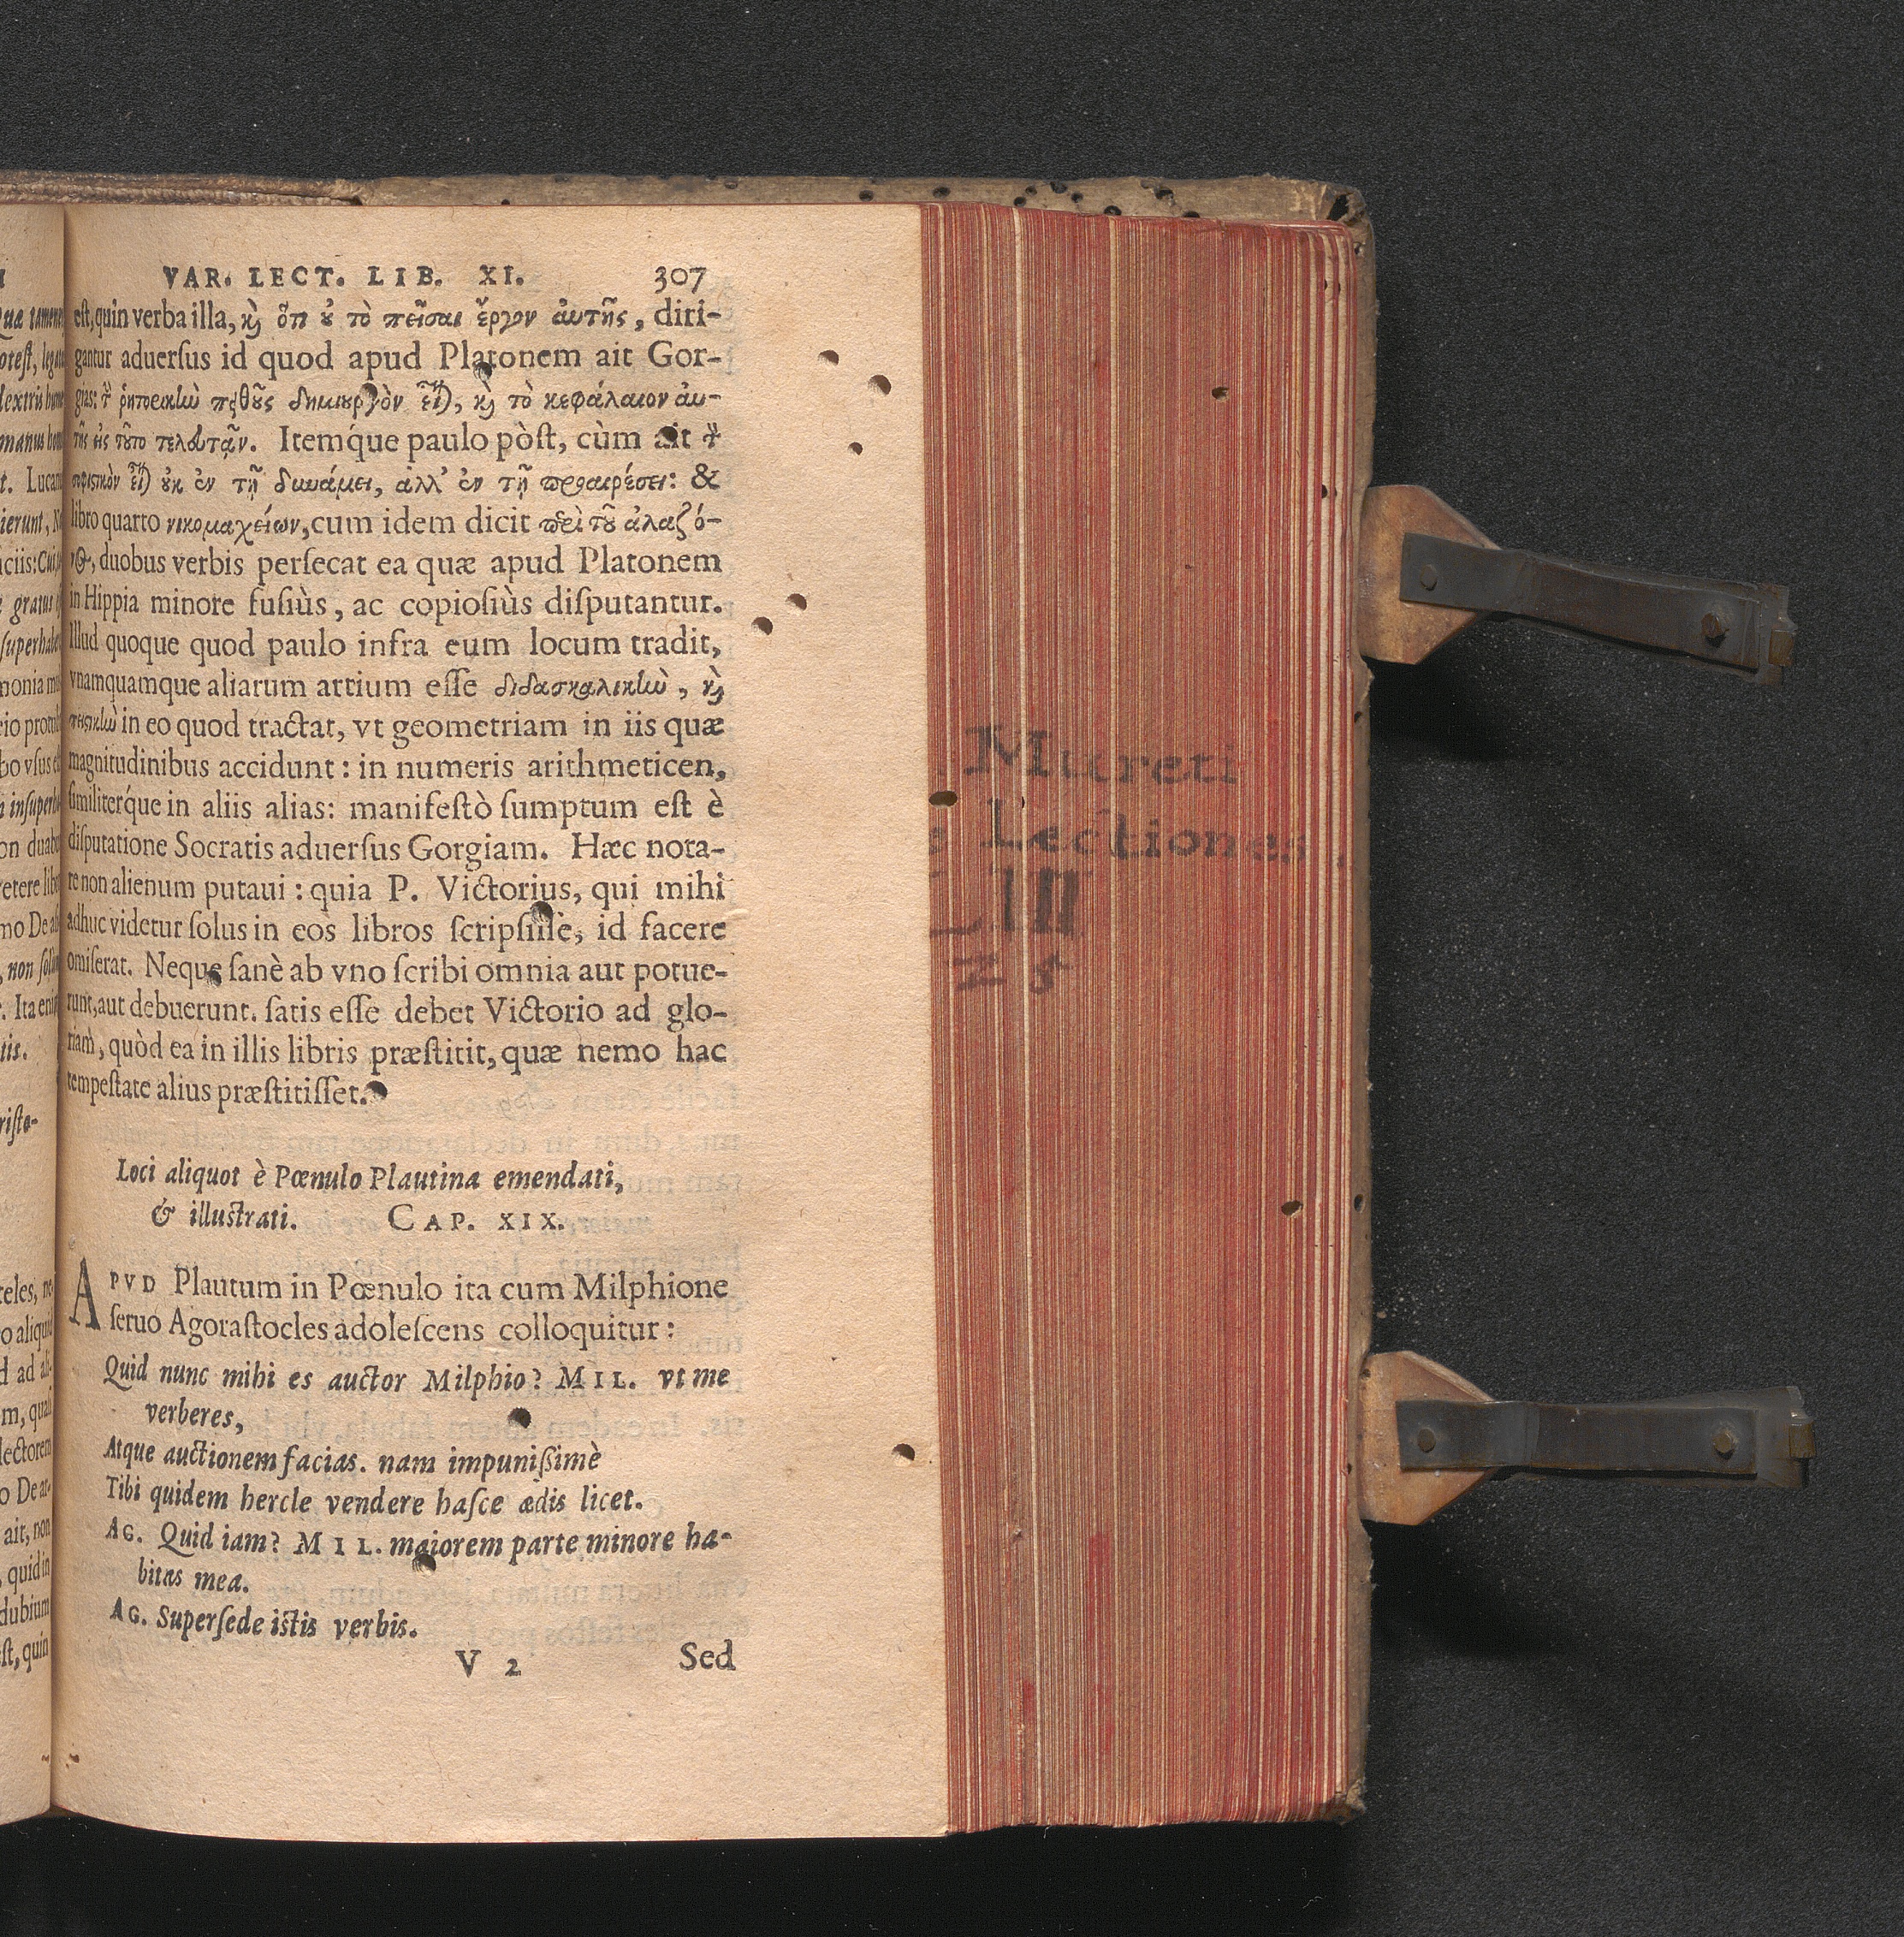 VAR. LECT. LIB. XI. 307
est, quin verba illa, ϗ ὅτι ȣ τὸ πεῖσαι ἔργον ἀυτῆς, diri-
gantur aduersus id quod apud Platonem ait Gor-
gias: τ ῥητορικὴν πειθοῦς δημιουργὸν εἶναι, ϗ τὸ κεφάλαιον ἀυ-
τῆς εἰς τοῦτο τελευτᾶν. Itemq́ue paulo pòst, cùm ait τ
σοφιστικὸν εἶναι οὐκ ἐν τῇ δυνάμει, ἀλλ' ἐν τῇ προαιρέσει: &
libro quarto νικομαχείων, cum idem dicit περὶ τοῦ ἀλαζό-
νος, duobus verbis persecat ea quæ apud Platonem
in Hippia minore fusiùs, ac copiosiùs disputantur.
Illud quoque quod paulo infra eum locum tradit,
vnamquamque aliarum artium esse διδασκαλικὴν, ϗ
πειστικὴν in eo quod tractat, vt geometriam in iis quæ
magnitudinibus accidunt: in numeris arithmeticen,
similiterq́ue in aliis alias: manifestò sumptum est è
disputatione Socratis aduersus Gorgiam. Hæc nota-
re non alienum putaui: quia P. Victorius, qui mihi
adhuc videtur solus in eos libros scripsisse, id facere
omiserat. Neque sanè ab vno scribi omnia aut potue-
runt, aut debuerunt. satis esse debet Victorio ad glo-
riam, quòd ea in illis libris præstitit, quæ nemo hac
tempestate alius præstitisset.
Loci aliquot è Pœnulo Plautina emendati,
& illustrati. CAP. XIX.
APVD Plautum in Pœnulo ita cum Milphione
seruo Agorastocles adolescens colloquitur:
Quid nunc mihi es auctor Milphio? MIL. vt me
verberes,
Atque auctionem facias. nam impunissimè
Tibi quidem hercle vendere hasce ædis licet.
AG. Quid iam? MIL. maiorem parte minore ha-
bitas mea.
AG. Supersede istis verbis.
V 2 Sed
Mureti
Lectiones
III
25